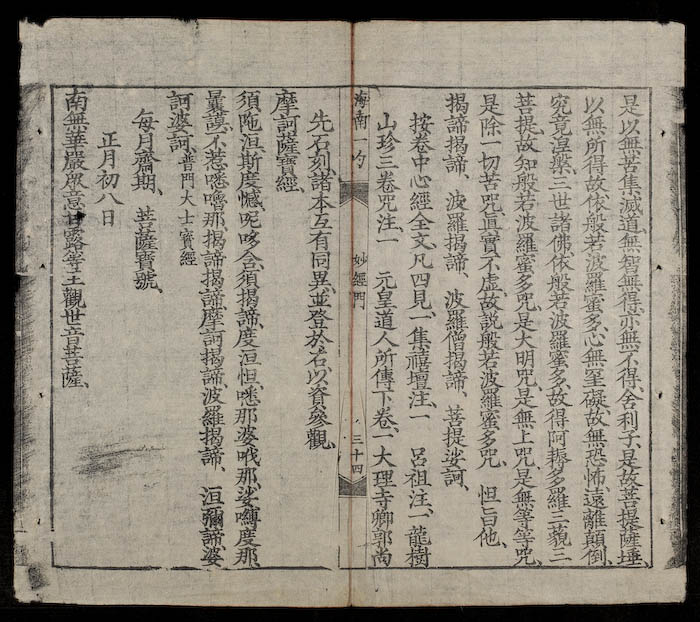 是以無苦集滅道、無智無得、亦無不得、舍利子、是故菩提薩埵、
以無所得故、依般若波羅蜜多、心無罣礙、故無恐怖、遠離顛倒、
究竟涅槃、三世諸佛、依般若波羅蜜多、故得阿耨多羅三藐三
菩提、故知般若波羅蜜多咒、是大明咒、是無上咒、是無等等咒、
是除一切苦咒、眞實不虛、故說般若波羅蜜多咒、怛㫖他、
揭諦揭諦、波羅揭諦、波羅僧揭諦、菩提娑訶、
按卷中心經全文凡四見、一集禧壇注、一 呂祖注、一龍樹
山珍三卷咒注、一 元皇道人所傳下卷、一大理寺卿郭尚
海南一勺
妙經門
三十四
先石刻諸本互有同異、並登於右、以資參觀、
摩訶薩寶經、
須陁洹、斯度憾、呢哆含、須揭諦、度洹怛、悉那婆哦那、娑嚩度那、
曩謨、不惹、悉嚕那、揭諦揭諦、摩訶揭諦、波羅揭諦、洹彌諦、婆
訶婆訶、普門大士寶經
每月齋期、菩薩寶號、
正月初八日
南無華嚴眾意甘露等王觀世音菩薩、